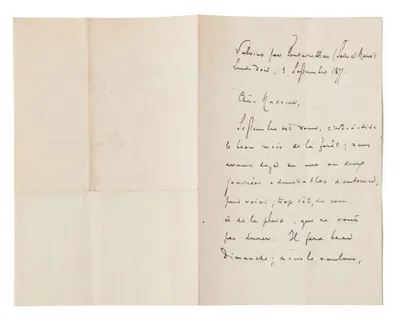 Valvins par Fontainebleau (Seine et Marne)
3 Septembre 189
Chère Madame,
Septembre est venu, c'est-à-dire
le beau mois de la forêt; nous
avons déjà eu une ou deux
journées admirables d'automne,
puis voici, trop tôt, du noir
et de la pluie, que ne vont
pas durer. Il fera beau
Dimanche; nous le voulons,